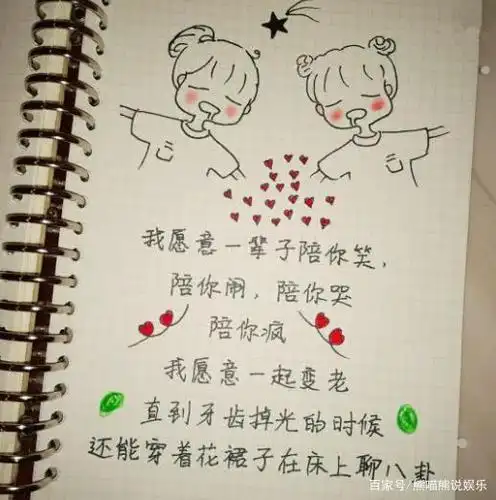 我愿意一辈子陪你笑，
陪你闹，陪你哭
陪你疯
我愿意一起变老
直到牙齿掉光的时候
还能穿着花裙子在床上聊八卦
百家号/熊喵熊说娱乐